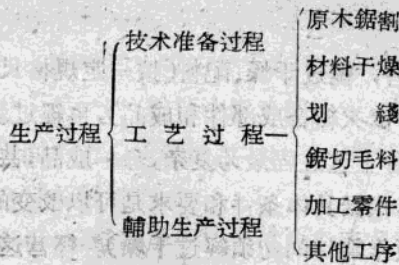 生产过程
技术准备过程
工艺过程
輔助生产过程
原木鋸割
材料干燥
划綫
鋸切毛料
加工零件
其他工序